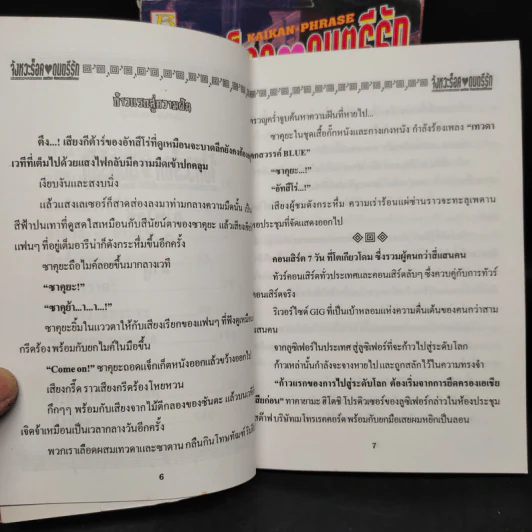 KAIKAN-PHRASE
จังหวะร็อค♥ดนตรีรัก
ก้าวแรกสู่ความฝัน
ตึง...! เสียงกีต้าร์ของอัทสึโร่ที่ดูเหมือนจะบาดลึกยังคงก้อง
เวทีที่เต็มไปด้วยแสงไฟกลับมืดความมืดเข้าปกคลุม
เงียบงันและสงบนิ่ง
แล้วแสงเลเซอร์ก็สาดส่องลงมาท่ามกลางความมืดนั้น
สีฟ้าปนเทาที่ดูสดใสเหมือนกับสีนัยน์ตาของซาคุยะ แล้วเสียง
แฟนๆ ที่อยู่เต็มอารีน่าก็ดังกระหึ่มขึ้นอีกครั้ง
ซาคุยะถือไมค์ลอยขึ้นมากลางเวที
“ซาคุยะ!”
“ซาคุย้า...า...า...!”
ซาคุยะยิ้มในแววตาให้กับเสียงเรียกของแฟนๆ ที่ฟังดูเหมือน
กรีดร้อง พร้อมกับยกไมค์ในมือขึ้น
“Come on!” ซาคุยะถอดแจ็กเก็ตหนังออกแล้วขว้างออกไป
เสียงกรี๊ด ราวเสียงกรีดร้องโหยหวน
กึกๆๆ พร้อมกับเสียงจากไม้ตีกลองของซันตะ แล้วบน
เจิดจ้าเหมือนเป็นเวลากลางวันอีกครั้ง
พวกเราเลือดผสมเทวดาและซาตาน กลืนกินโทษทัณฑ์
6
จังหวะร็อค♥ดนตรีรัก
ราวถูกคร่ำชูบค้นหาความฝันที่หายไป...
ซาคุยะในชุดเสื้อกั๊กหนังและกางเกงหนัง กำลังร้องเพลง “เทวดา
ตกสวรรค์ BLUE”
“ซาคุยะ...!”
“อัทสึโร่...!”
เสียงผู้ชมดังกระหึ่ม ความเร่าร้อนแผ่ซ่านราวจะทะลุเพดาน
หอประชุมที่จัดแสดงออกไป
คอนเสิร์ต 7 วัน ที่โตเกียวโดม ซึ่งรวมผู้คนกว่าสี่แสนคน
ทัวร์คอนเสิร์ตทั่วประเทศและคอนเสิร์ตลับๆ ซึ่งควบคู่กับการทัวร์
คอนเสิร์ตจริง
ริเวอร์ไซด์ GIG ที่เป็นเป้าหลอมแห่งความตื่นเต้นของคนกว่าสาม
แสนคน
จากลูซิเฟอร์ในประเทศ สู่ลูซิเฟอร์ที่จะก้าวไประดับโลก
ก้าวเหล่านั้นกำลังจะจางหายไป และถูกสลักไว้ในความทรงจำ
“ก้าวแรกของการไปสู่ระดับโลก ต้องเริ่มจากการยึดครองเอเชีย
เสียก่อน” ทาคายามะ ฮิเดชิ โปรดิวเซอร์ของลูซิเฟอร์กล่าวในห้องประชุม
สตาฟ บริษัทเมโทรเรคคอร์ด พร้อมกับยกมือเสยผมหยิกเป็นลอน
7